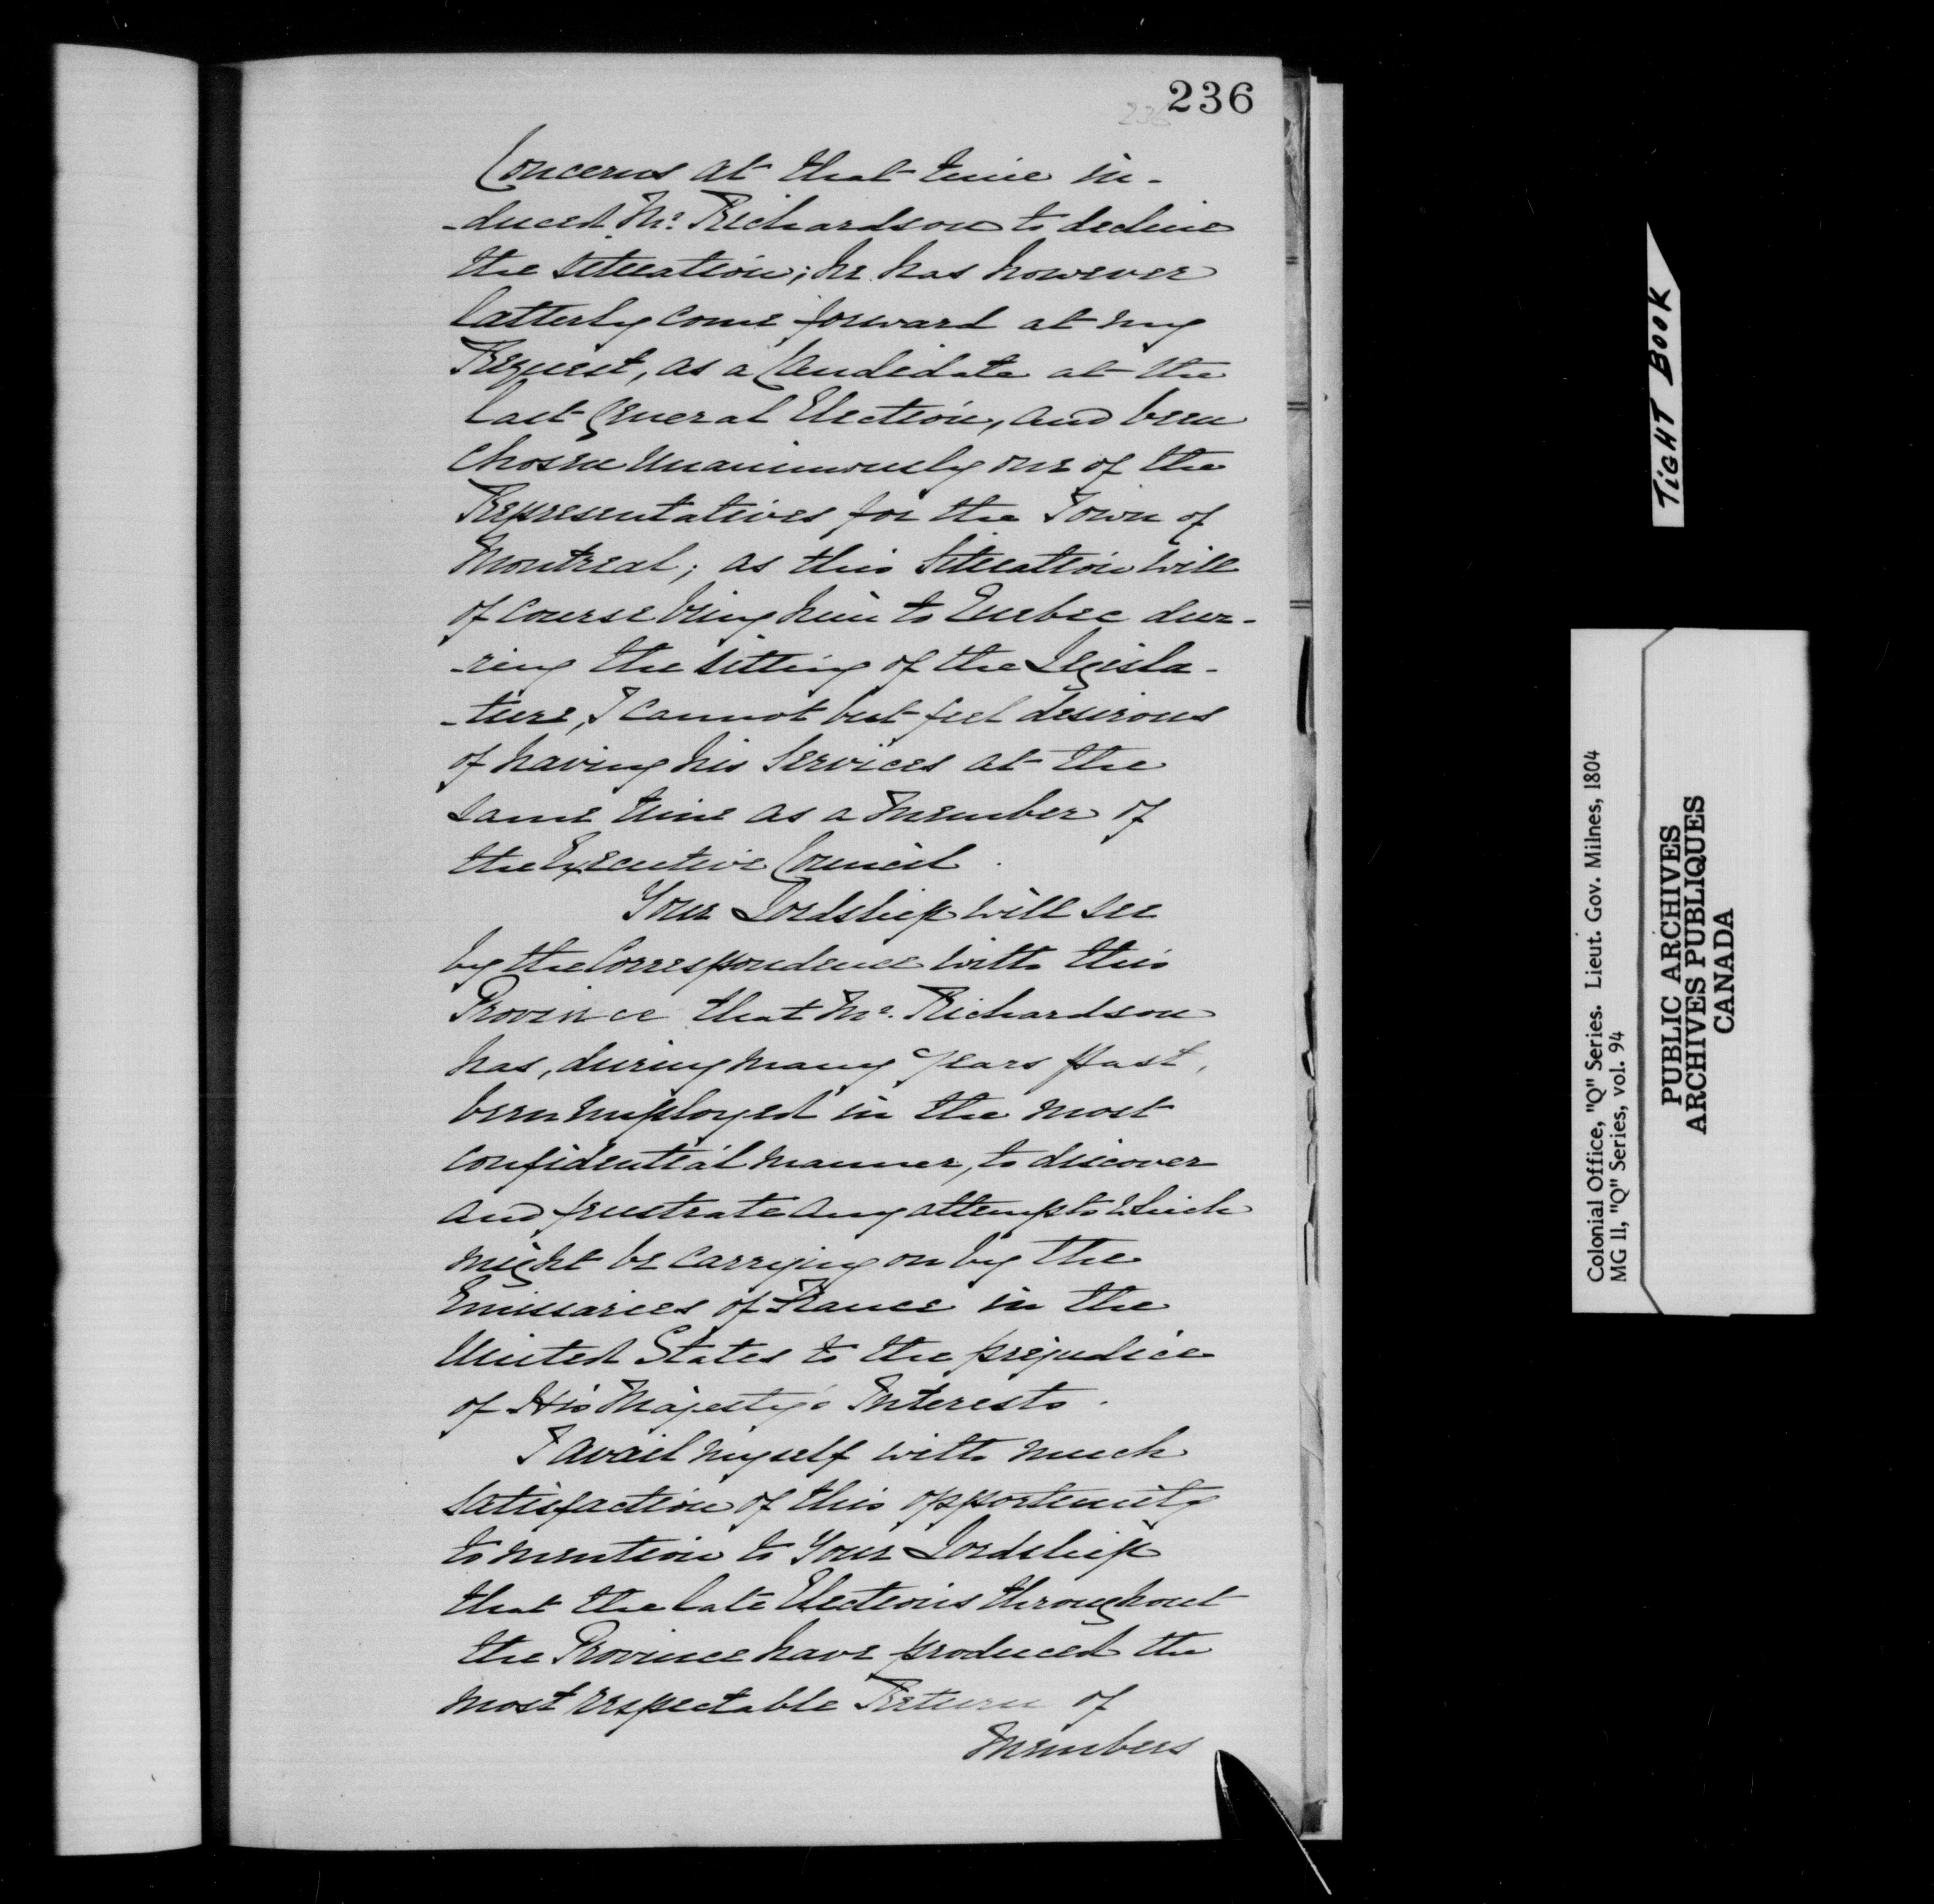 236
236
Concerns at that time in-
-duced Mr. Richardson to decline
the situation; he has however
latterly come forward at my
Request, as a Candidate at the
last General Election, and been
chosen unanimously one of the
Representatives for the Town of
Montreal; as this Situation will
of course bring him to Quebec dur-
-ring the sitting of the Legisla-
-ture, I cannot but feel desirous
of having his Services at the
same time as a Member of
the Executive Council.
Your Lordship will see
by the Correspondence with this
Province that Mr. Richardson
has, during many years past,
been employed in the most
confidential manner, to discover
and frustrate any attempts which
might be carrying on by the
Emissaries of France in the
United States to the prejudice
of His Majesty's Interests.
I avail myself with much
satisfaction of this opportunity
to mention to Your Lordship
that the late Elections throughout
the Province have produced the
most respectable Return of
Members
TIGHT BOOK
Colonial Office, "Q" Series. Lieut. Gov. Milnes, 1804
MG 11, "Q" Series, vol. 94
PUBLIC ARCHIVES
ARCHIVES PUBLIQUES
CANADA